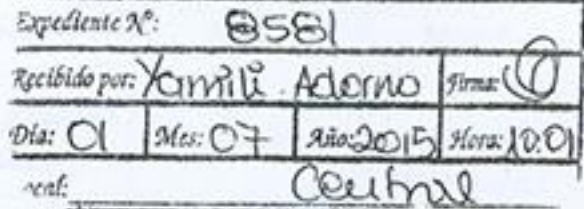 Expediente Nº: 8581
Recibido por: Yamili Adorno Firma:
Día: 01 Mes: 07 Año: 2015 Hora: 10:01
Central